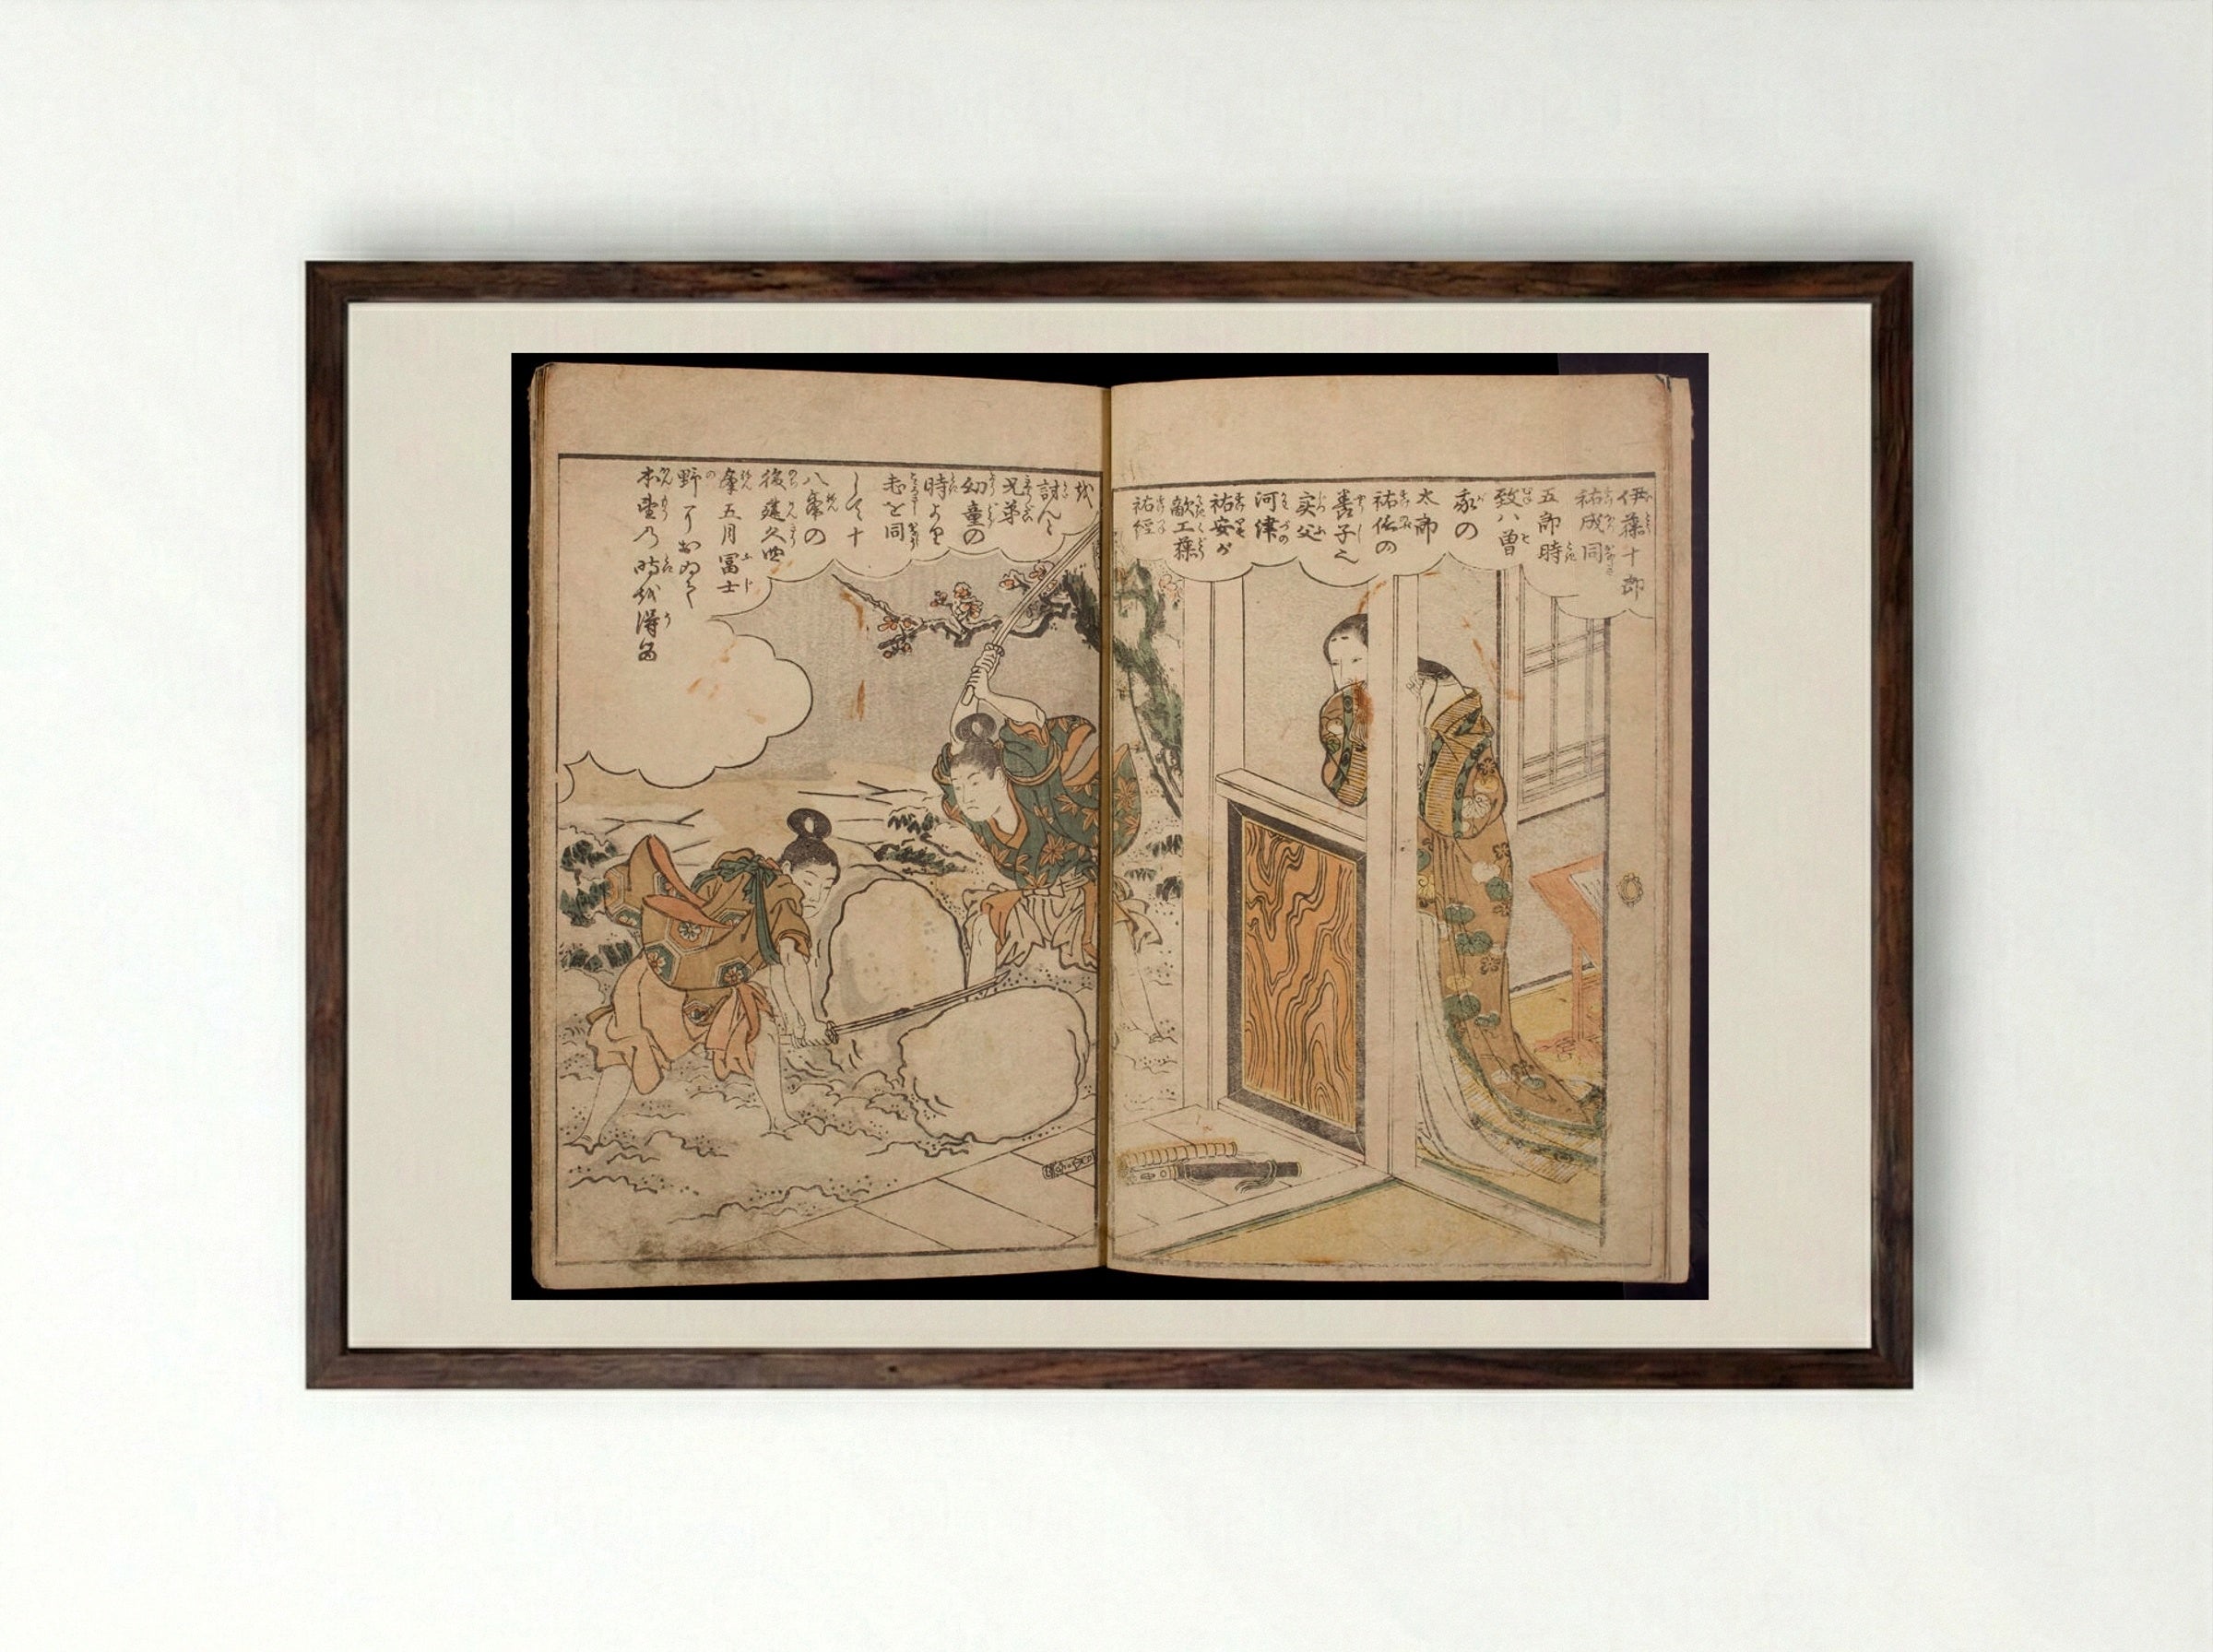 伊藤十郎
祐成同
五郎時
致ハ曽
我の
太郎
祐信の
養子
実父
河津
祐安が
敵工藤
祐経
越
討んと
兄弟
幼童の
時より
志を同
して十
八年の
後建久四
年五月冨士
野においゐて
本望乃時越得